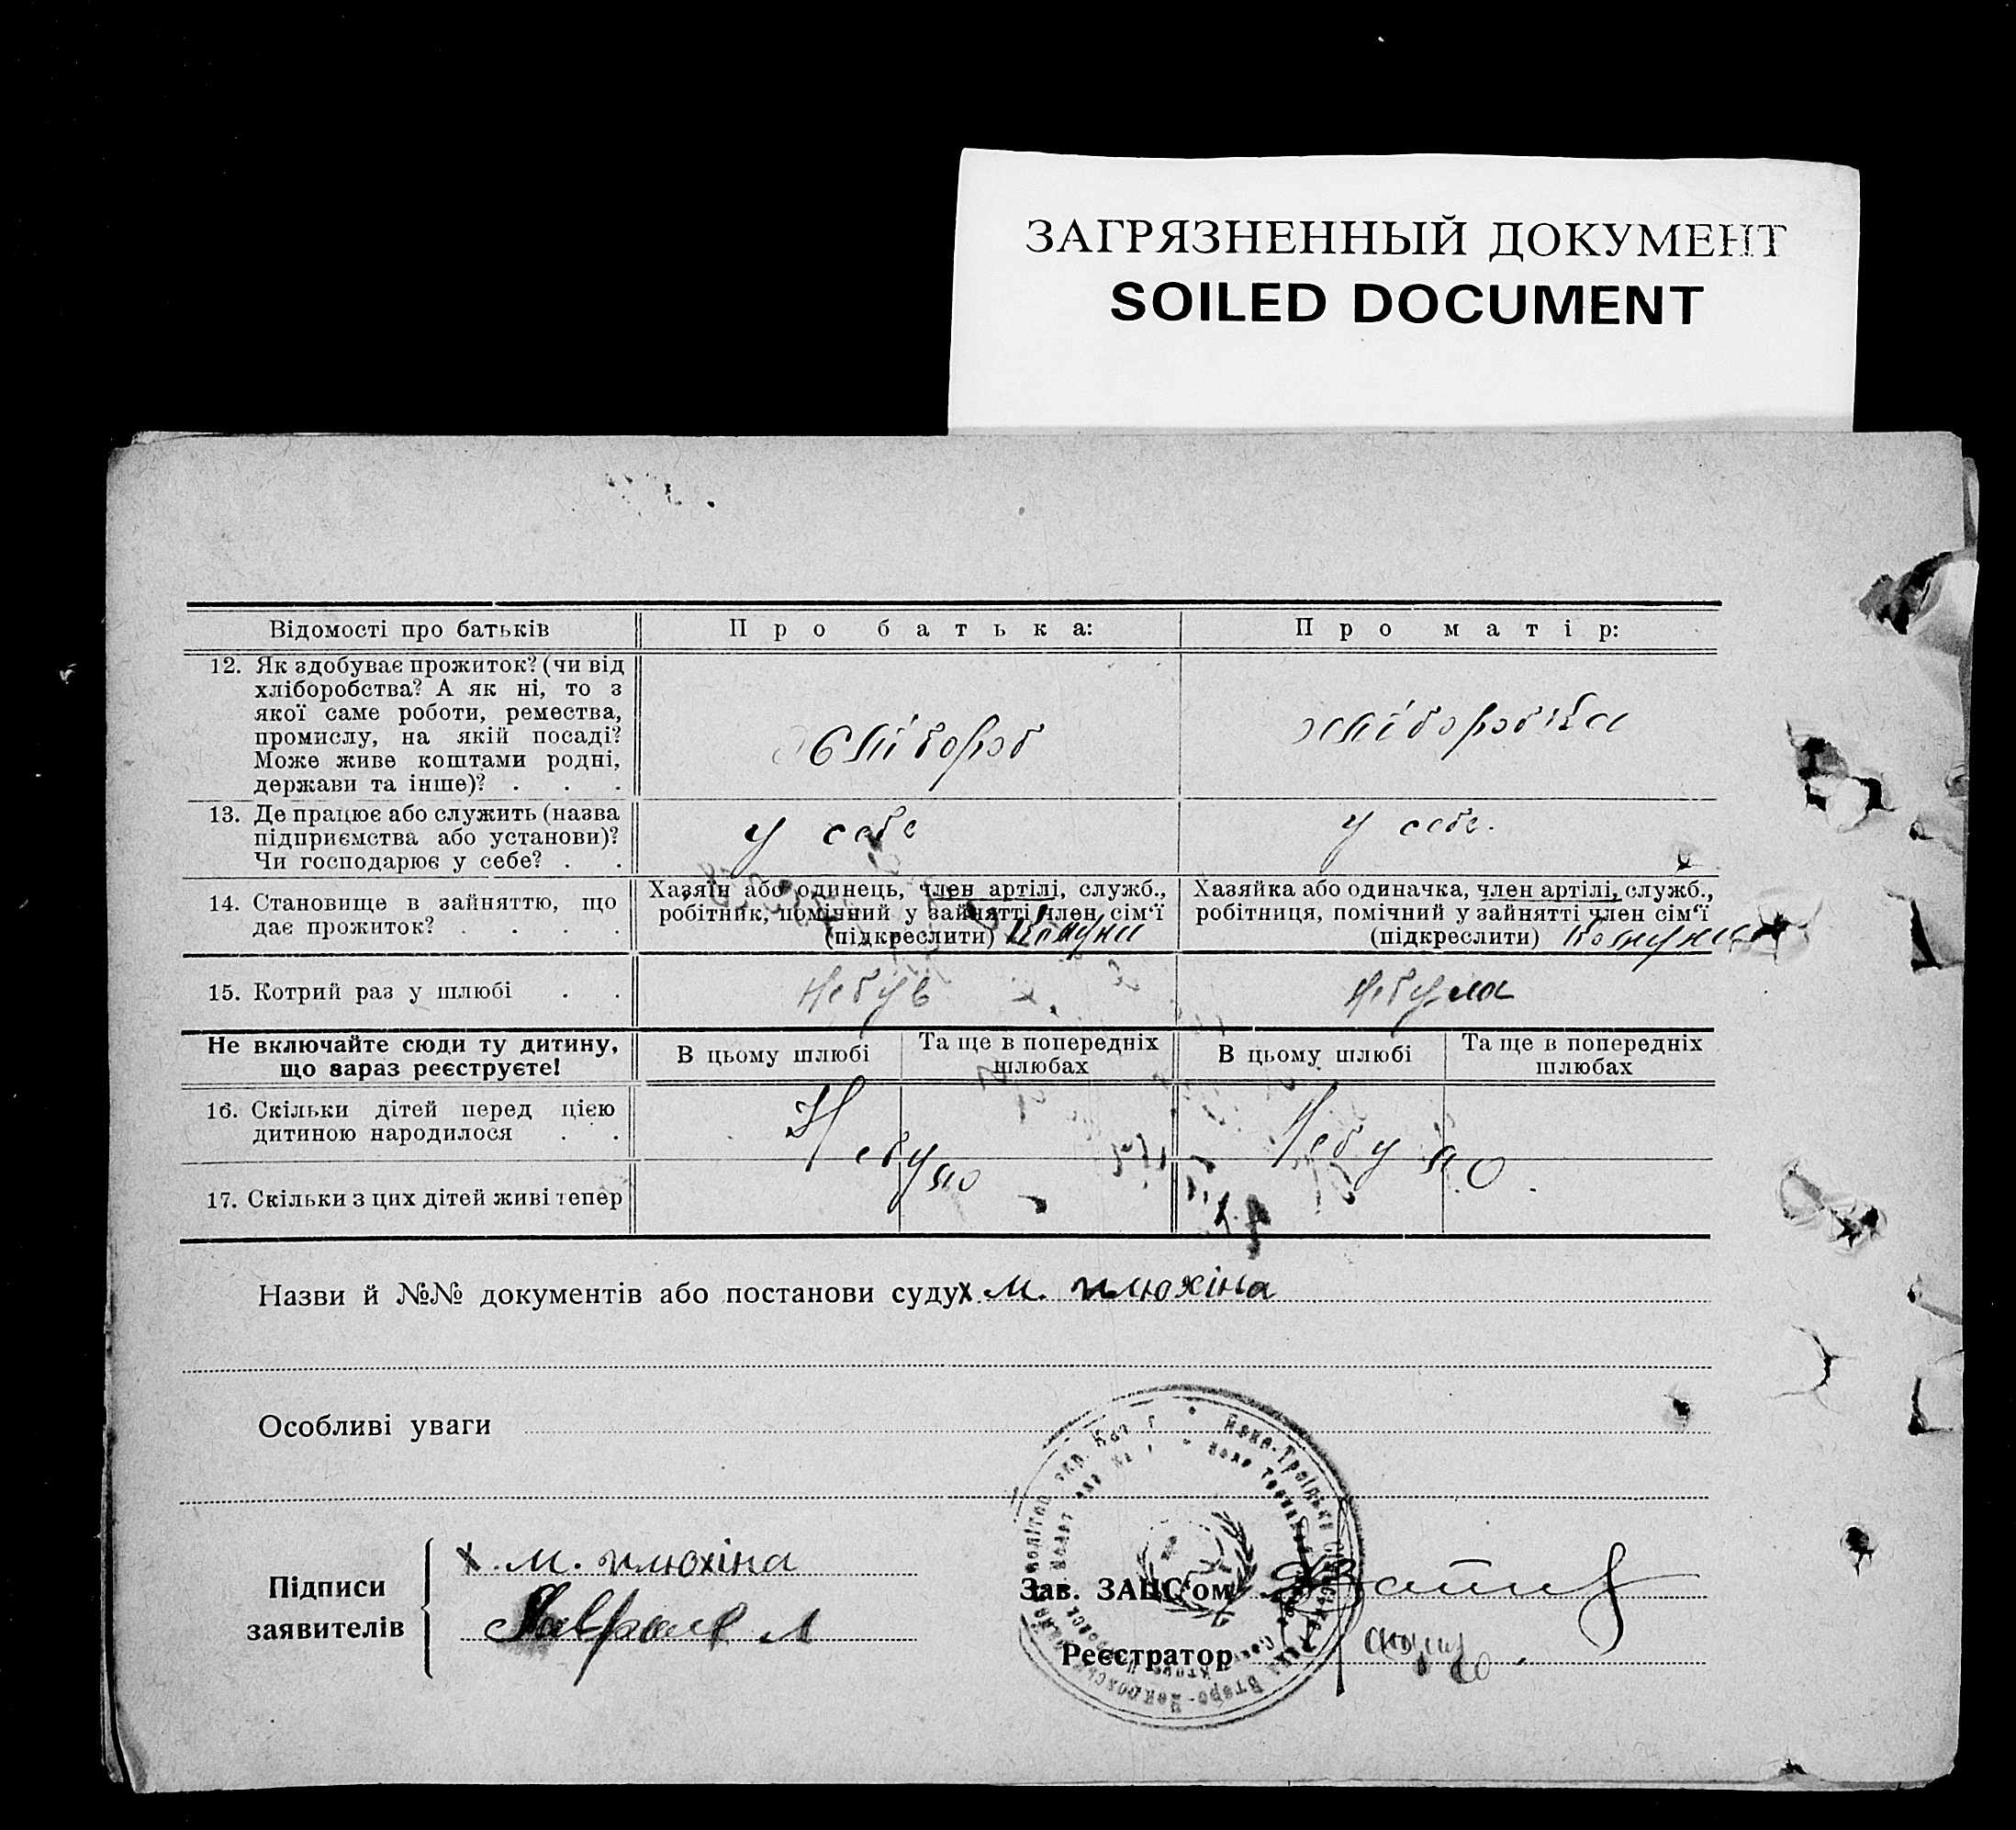 ЗАГРЯЗНЕННЫЙ ДОКУМЕНТ
SOILED DOCUMENT
Відомості про батьків
Про батька:
Про матір:
12. Як здобуває прожиток? (чи від
хліборобства? А як ні, то з
якої саме роботи, ремества,
промислу, на якій посаді?
Може живе коштами родні,
держави та інше)? . . .
хлібороб
хліборобка
13. Де працює або служить (назва
підприємства або установи)?
Чи господарює у себе? . .
у себе
у себе.
14. Становище в зайняттю, що
дає прожиток? . . . .
Хазяїн або одинець, член артілі, служб.,
робітник, помічний у зайнятті член сім'ї
(підкреслити) комуни
Хазяйка або одиначка, член артілі, служб.,
робітниця, помічний у зайнятті член сім'ї
(підкреслити) комуни
15. Котрий раз у шлюбі . .
Небув
Небула
Не включайте сюди ту дитину,
що зараз реєструєте!
В цьому шлюбі
Та ще в попередніх
шлюбах
В цьому шлюбі
Та ще в попередніх
шлюбах
16. Скільки дітей перед цією
дитиною народилося . .
Небуло
Небуло.
17. Скільки з цих дітей живі тепер
Назви й №№ документів або постанови суду х м. плюхіна
Особливі уваги
Підписи
заявителів
х. м. плюхіна
Зав. ЗАЦС'ом
Реєстратор